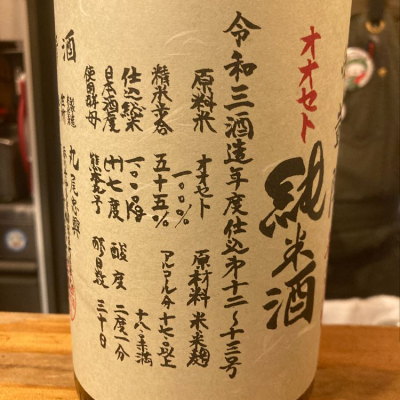 オオセト
純米酒
令和三酒造年度仕込第十二〜十三号
原料米 オオセト 一〇〇% 原材料 米 米麹
精米歩合 五十五% アルコール分 十七.以上 十八.未満
仕込総米 一〇〇〇
日本酒度 (+)七度 酸度 二度一分
使用酵母 熊本九号 醪日数 三十日
酒
丸尾忠興